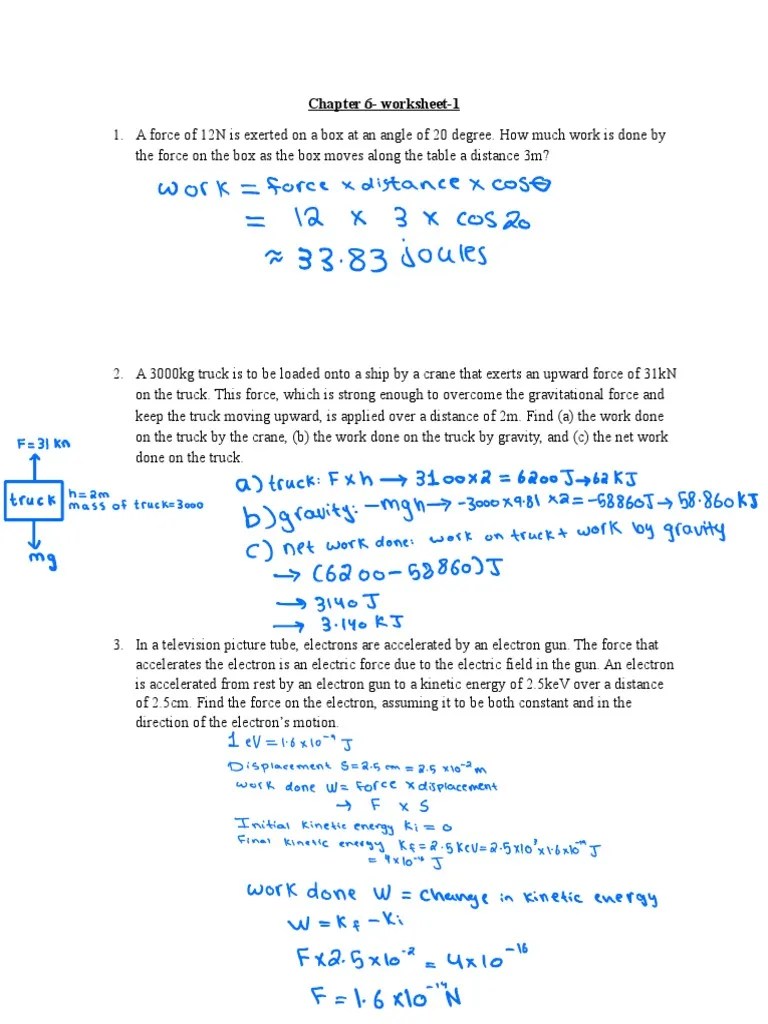 Chapter 6- worksheet-1
1. A force of 12N is exerted on a box at an angle of 20 degree. How much work is done by
the force on the box as the box moves along the table a distance 3m?
work = force x distance x cosθ
= 12 x 3 x cos20
≈ 33.83 joules
2. A 3000kg truck is to be loaded onto a ship by a crane that exerts an upward force of 31kN
on the truck. This force, which is strong enough to overcome the gravitational force and
keep the truck moving upward, is applied over a distance of 2m. Find (a) the work done
on the truck by the crane, (b) the work done on the truck by gravity, and (c) the net work
done on the truck.
F=31 kn
truck
h=2m
mass of truck=3000
mg
a) truck: F x h → 3100x2 = 6200 J → 62 KJ
b) gravity: -mgh → -3000 x9.81 x2 = -58860J → 58.860kJ
c) net work done: work on truck + work by gravity
→ (6200-58860)J
→ 3140 J
→ 3.140 KJ
3. In a television picture tube, electrons are accelerated by an electron gun. The force that
accelerates the electron is an electric force due to the electric field in the gun. An electron
is accelerated from rest by an electron gun to a kinetic energy of 2.5keV over a distance
of 2.5cm. Find the force on the electron, assuming it to be both constant and in the
direction of the electron's motion.
1 eV = 1.6 x10 J
Displacement S=2.5 cm = 2.5 x10⁻² m
work done W= force x displacement
→ F x S
Initial kinetic energy Ki = 0
Final kinetic energy Kf = 2.5 KeV = 2.5x10³ x 1.6x10 J
= 4x10 J
work done W = change in kinetic energy
W = Kf - Ki
F x 2.5 x 10⁻² = 4x10⁻¹⁶
F = 1.6 x10⁻¹⁴ N